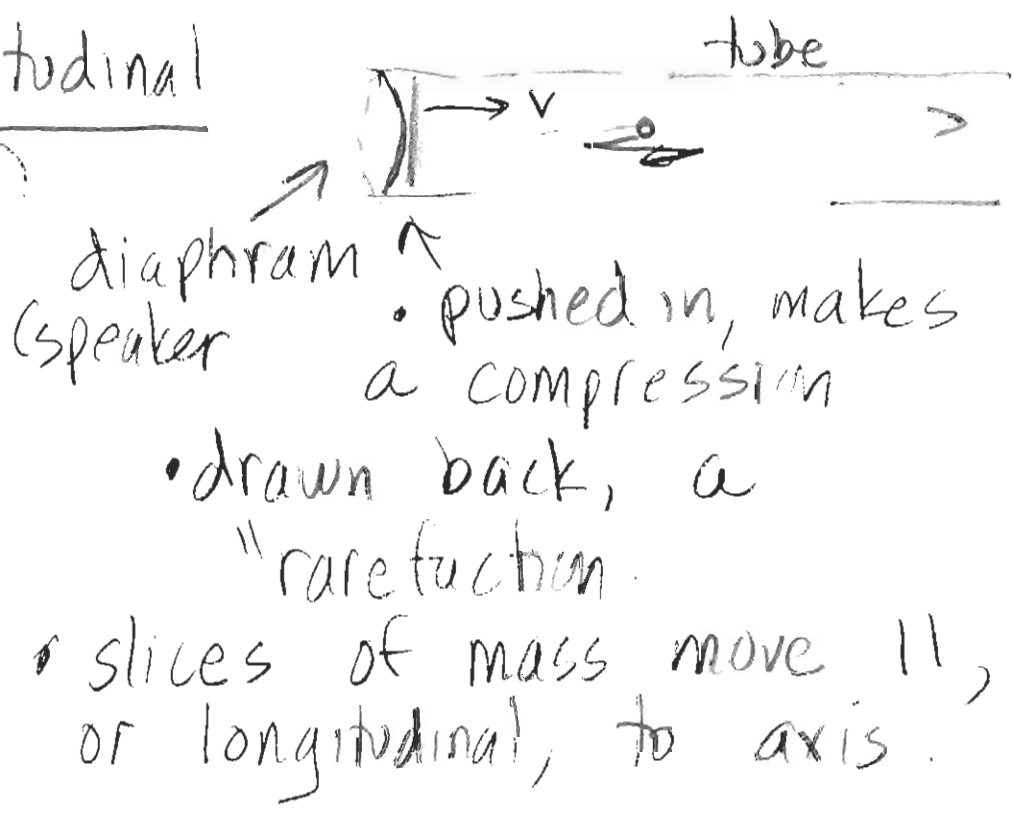 tudinal
tube
v
diaphram
(speaker
• pushed in, makes
a compression
• drawn back, a
"rarefaction
• slices of mass move ||,
or longitudinal, to axis.